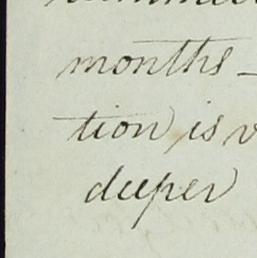 months -
tion is
deeper